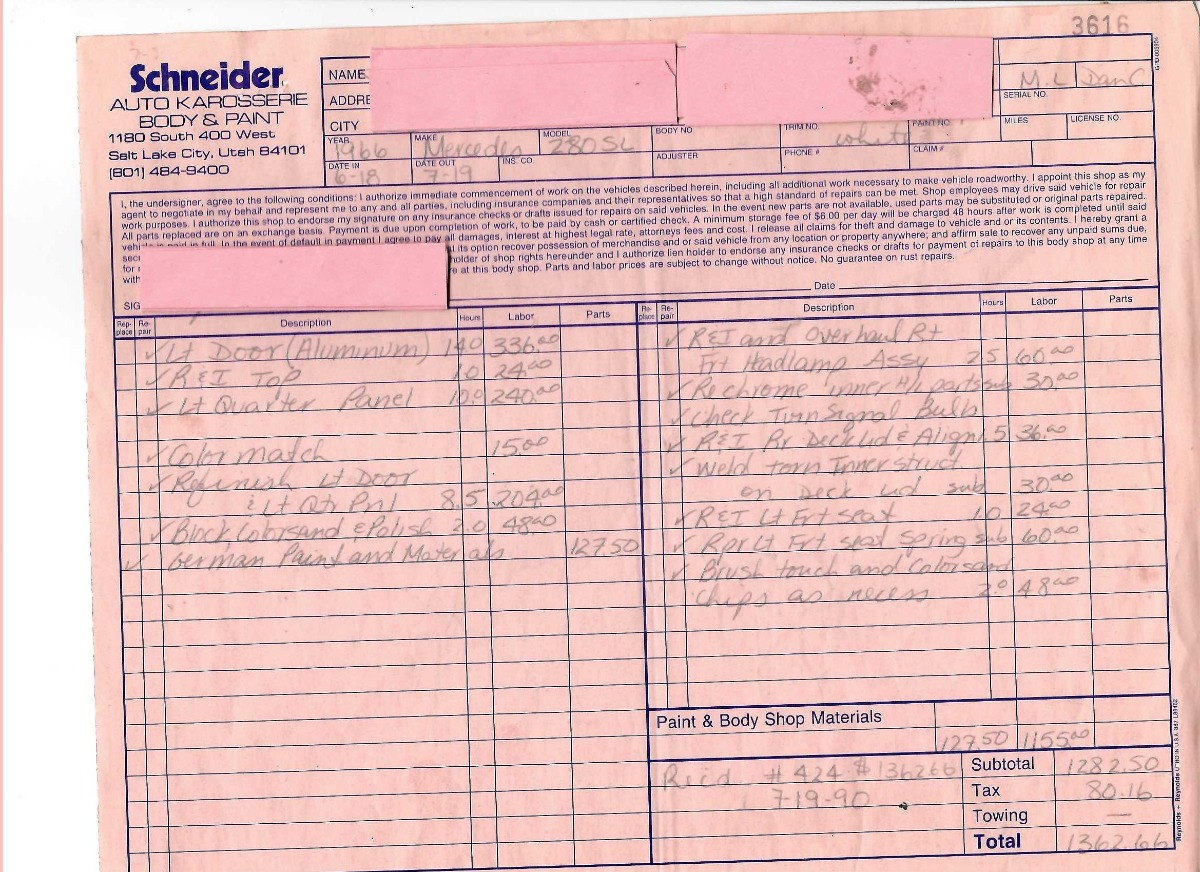 3616
Schneider
AUTO KAROSSERIE
BODY & PAINT
1180 South 400 West
Salt Lake City, Utah 84101
(801) 484-9400
NAME
ADDRE
CITY
M.L Dan C
SERIAL NO.
YEAR 1966 MAKE Mercedes MODEL 280SL BODY NO. TRIM NO. white PAINT NO. MILES LICENSE NO.
DATE IN 6-18 DATE OUT 7-19 INS. CO. ADJUSTER PHONE # CLAIM #
I, the undersigner, agree to the following conditions: I authorize immediate commencement of work on the vehicles described herein, including all additional work necessary to make vehicle roadworthy. I appoint this shop as my
agent to negotiate in my behalf and represent me to any and all parties, including insurance companies and their representatives so that a high standard of repairs can be met. Shop employees may drive said vehicle for repair
work purposes. I authorize this shop to endorse my signature on any insurance checks or drafts issued for repairs on said vehicles. In the event new parts are not available, used parts may be substituted or original parts repaired.
All parts replaced are on an exchange basis. Payment is due upon completion of work, to be paid by cash or certified check. A minimum storage fee of $6.00 per day will be charged 48 hours after work is completed until said
vehicle is paid in full. In the event of default in payment I agree to pay all damages, interest at highest legal rate, attorneys fees and cost. I release all claims for theft and damage to vehicle and or its contents. I hereby grant a
secu its option recover possession of merchandise and or said vehicle from any location or property anywhere; and affirm sale to recover any unpaid sums due,
for r holder of shop rights hereunder and I authorize lien holder to endorse any insurance checks or drafts for payment of repairs to this body shop at any time
with e at this body shop. Parts and labor prices are subject to change without notice. No guarantee on rust repairs.
SIG Date
Replace Repair Description Hours Labor Parts
✓ Lt Door (Aluminum) 14.0 336.00
✓ R&I Top 1.0 24.00
✓ Lt Quarter Panel 10.0 240.00
✓ Color match 15.00
✓ Refinish Lt Door
& Lt Qtr Pnl 8.5 204.00
✓ Block, Colorsand & Polish 2.0 48.00
✓ German Paint and Materials 127.50
Replace Repair Description Hours Labor Parts
✓ R&I and Overhaul Rt
Frt Headlamp Assy 2.5 60.00
✓ Rechrome inner H/L parts sub 30.00
✓ Check Turn Signal Bulb
✓ R&I Rr Deck Lid & Align 1.5 36.00
✓ Weld torn Inner struct
on Deck Lid sub 30.00
✓ R&I Lt Frt seat 1.0 24.00
✓ Rpr Lt Frt seat Spring sub 60.00
✓ Brush touch and Colorsand
Chips as necess 2.0 48.00
Paint & Body Shop Materials
127.50 1155.00
Rec'd # 424 $ 1362.66
7-19-90
Subtotal 1282.50
Tax 80.16
Towing —
Total 1362.66